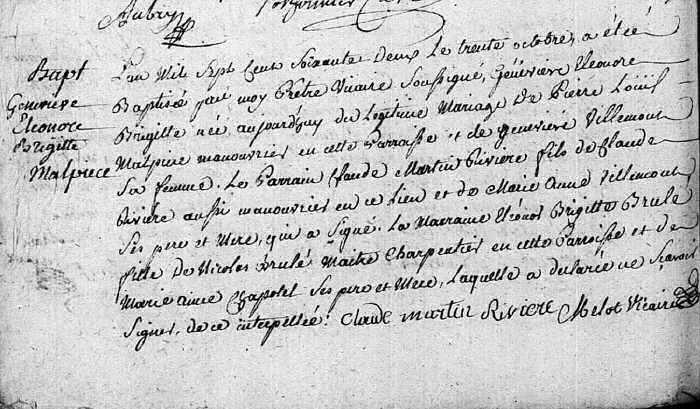 Aubry
Bapt
Geneviève
Eleonore
Brigitte
Malpiece
L'an Mil Sept Cent Soixante deux Le trente octobre, a eté
Baptisée par moy Prêtre Vicaire Soussigné, Geneviève Eleonore
Brigitte née aujourdhuy du Legitime Mariage de Pierre Loüis
Malpiece manouvrier en cette Parroisse et de genevieve Villemont
Sa femme. Le Parrain Claude Martin Riviere fils de Claude
Riviere aussi manouvrier en ce lieu et de Marie Anne Villemont
Ses pere et Mere, qui a Signé. La Marraine Eléonor Brigitte Brulé
fille de Nicolas Brulé Maitre Charpentier en cette Parroisse et de
Marie anne Chapotel Ses pere et Mere, Laquelle a declarée ne Scavoir
Signer, de ce interpellée. Claude martin Riviere Melot Vicaire